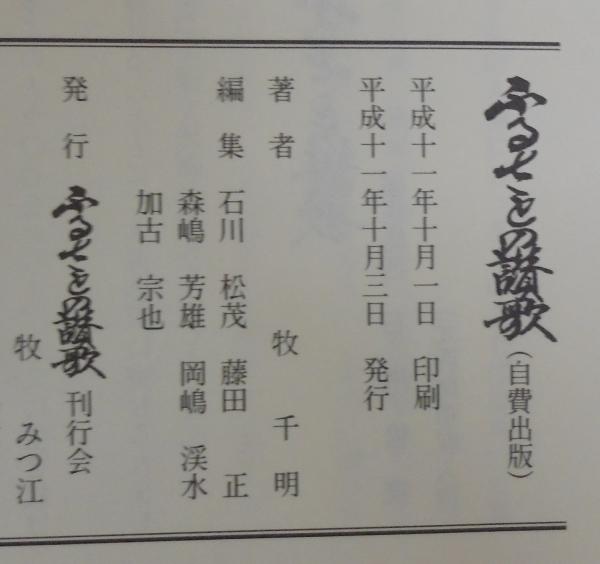 ふるさとの讃歌(自費出版)
平成十一年十月一日 印刷
平成十一年十月三日 発行
著者 牧 千明
編集 石川 松茂 藤田 正
森嶋 芳雄 岡嶋 渓水
加古 宗也
発行 ふるさとの讃歌 刊行会
牧 みつ江